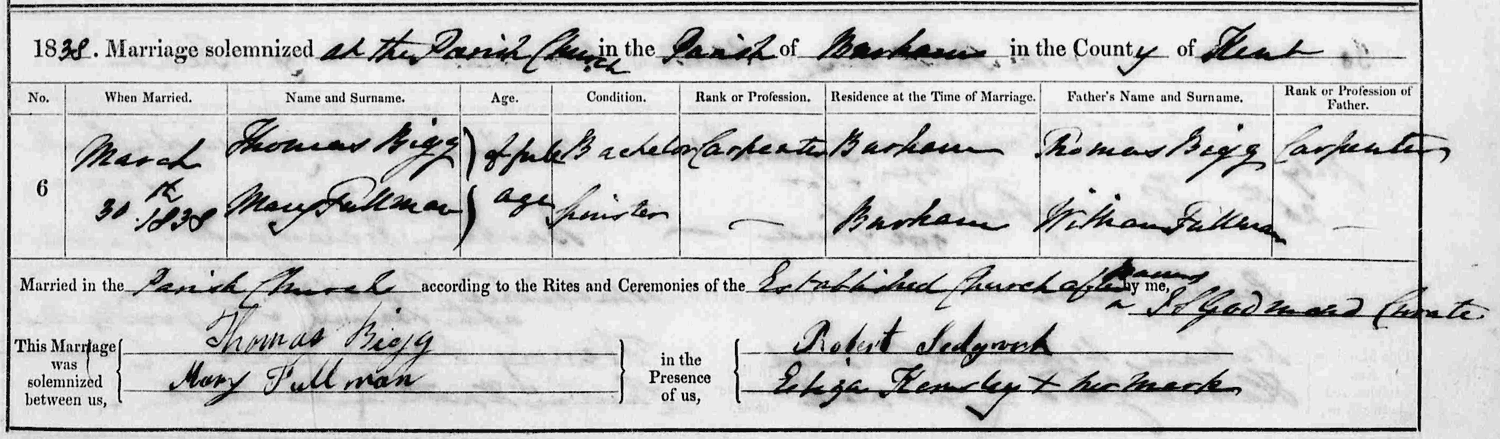 1838. Marriage solemnized at the Parish Church in the Parish of Barham in the County of Kent
No. When Married. Name and Surname. Age. Condition. Rank or Profession. Residence at the Time of Marriage. Father's Name and Surname. Rank or Profession of Father.
6 March 30th 1838 Thomas Bigg of full age Bachelor Carpenter Barham Thomas Bigg Carpenter
Mary Fullman Spinster — Barham William Fullman —
Married in the Parish Church according to the Rites and Ceremonies of the Established Church after Banns by me,
Godmard Curate
This Marriage was solemnized between us, Thomas Bigg in the Presence of us, Robert Sedgwick
Mary Fullman Kemsley + her Mark